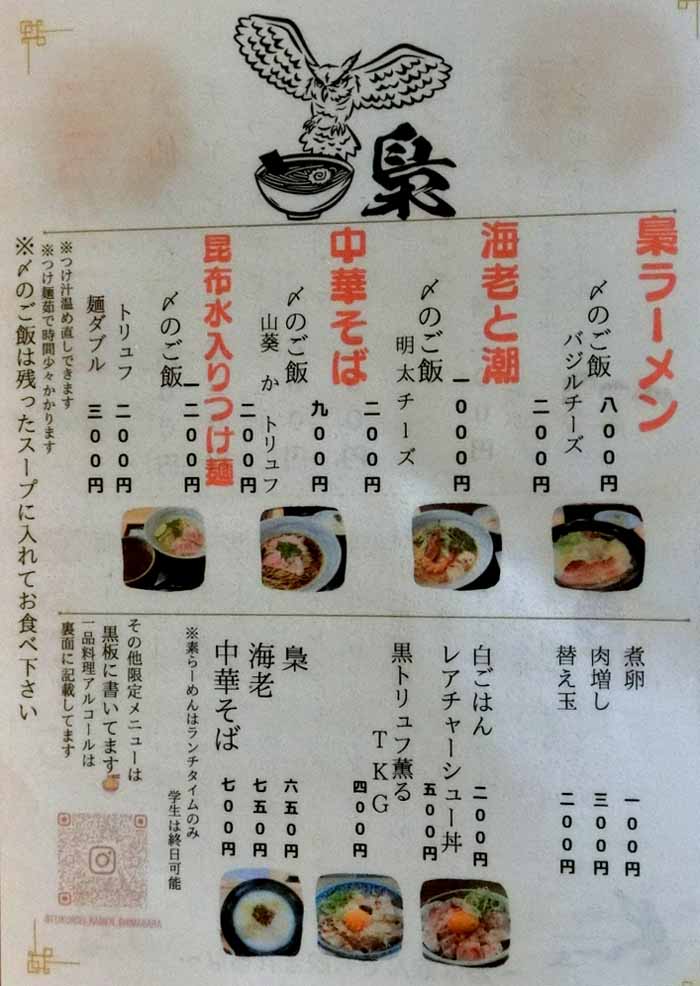 梟
梟ラーメン
八〇〇円
〆のご飯
バジルチーズ
二〇〇円
海老と潮
一〇〇〇円
〆のご飯
明太チーズ
二〇〇円
中華そば
九〇〇円
〆のご飯
山葵 か トリュフ
二〇〇円
昆布水入りつけ麺
一二〇〇円
〆のご飯
トリュフ
二〇〇円
麺ダブル
三〇〇円
※つけ汁温め直しできます
※つけ麺茹で時間少々かかります
※〆のご飯は残ったスープに入れてお食べ下さい
煮卵
一〇〇円
肉増し
三〇〇円
替え玉
二〇〇円
白ごはん
二〇〇円
レアチャーシュー丼
五〇〇円
黒トリュフ薫る
TKG
四〇〇円
梟
六五〇円
海老
七五〇円
中華そば
七〇〇円
※素らーめんはランチタイムのみ
学生は終日可能
その他限定メニューは
黒板に書いてます
一品料理アルコールは
裏面に記載してます